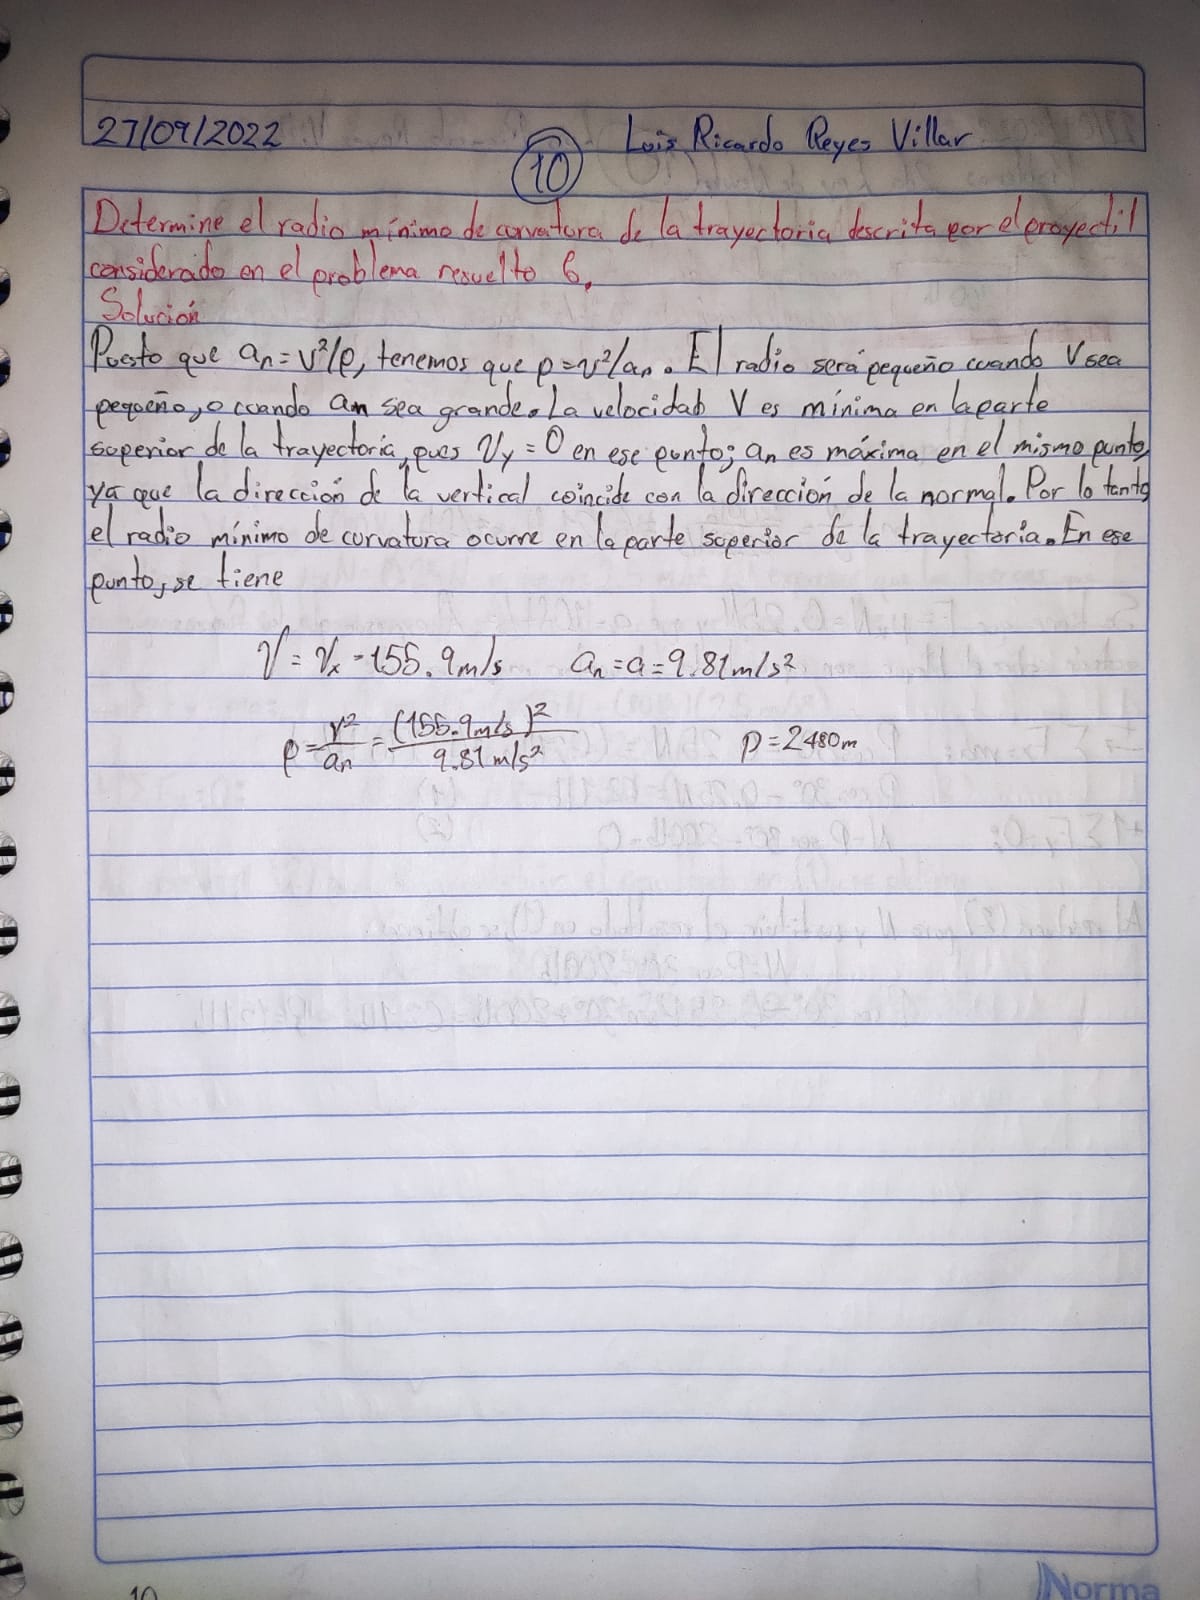 27/09/2022
Luis Ricardo Reyes Villar
10
Determine el radio mínimo de curvatura de la trayectoria descrita por el proyectil
considerado en el problema resuelto 6.
Solución
Puesto que an = v²/ρ, tenemos que ρ = v²/an. El radio será pequeño cuando V sea
pequeño, o cuando an sea grande. La velocidad V es mínima en la parte
superior de la trayectoria, pues Vy = 0 en ese punto; an es máxima en el mismo punto,
ya que la dirección de la vertical coincide con la dirección de la normal. Por lo tanto
el radio mínimo de curvatura ocurre en la parte superior de la trayectoria. En ese
punto, se tiene
V = Vx = 155.9 m/s an = a = 9.81 m/s²
ρ = v²/an = (155.9 m/s)²/9.81 m/s² ρ = 2480 m
10
Norma